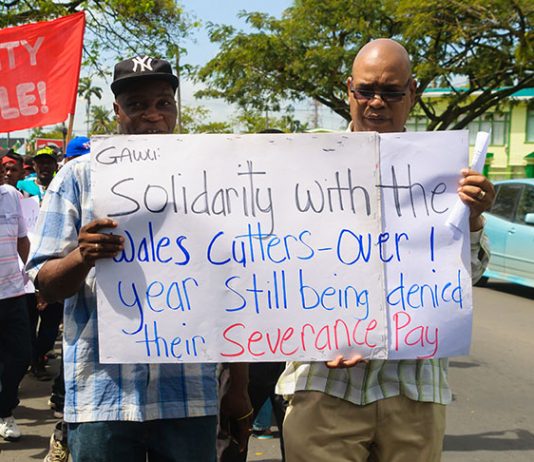 TY
LE!
NY
GAWU:
Solidarity with the
Wales Cutters-Over 1
year still being denied
their Severance Pay